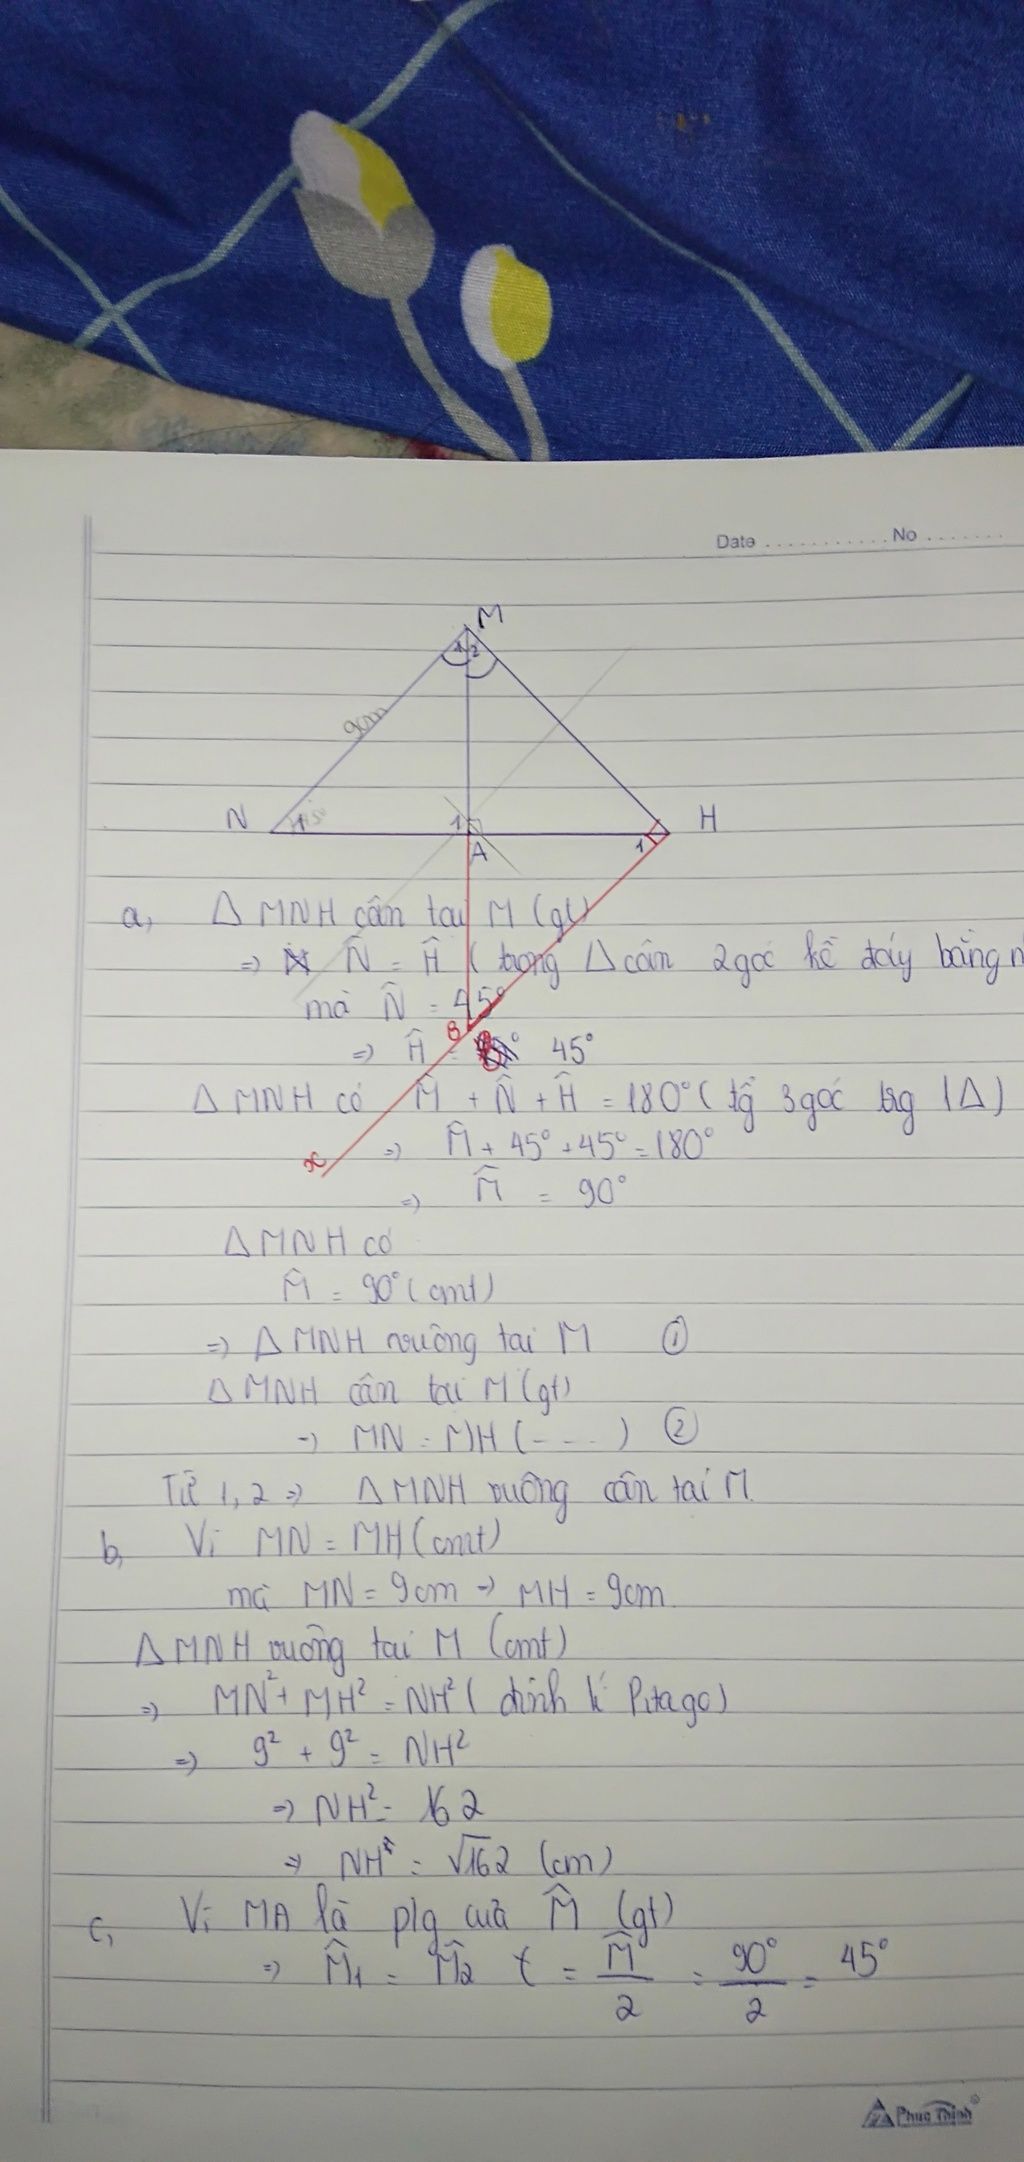 Date ............ No ........
M
1 2
9cm
N 45° 1 H
A 1
a, Δ MNH cân tại M (gt)
=> N̂ = Ĥ ( trong Δ cân 2 góc kề đáy bằng n
mà N̂ = 45°
B
=> Ĥ = 45°
Δ MNH có M̂ + N̂ + Ĥ = 180° ( tg 3 góc trg 1Δ)
x => M̂ + 45° + 45° = 180°
=> M̂ = 90°
Δ MNH có
M̂ = 90° (cmt)
=> Δ MNH vuông tại M ①
Δ MNH cân tại M (gt)
=> MN = MH (----) ②
Từ 1, 2 => Δ MNH vuông cân tại M
b, Vì MN = MH (cmt)
mà MN = 9cm => MH = 9cm
Δ MNH vuông tại M (cmt)
=> MN² + MH² = NH² ( định lí Pitago)
=> 9² + 9² = NH²
=> NH² = 162
=> NH = √162 (cm)
c, Vì MA là p/g của M̂ (gt)
=> M̂₁ = M̂₂ = M̂/2 = 90°/2 = 45°
Phuc Thinh